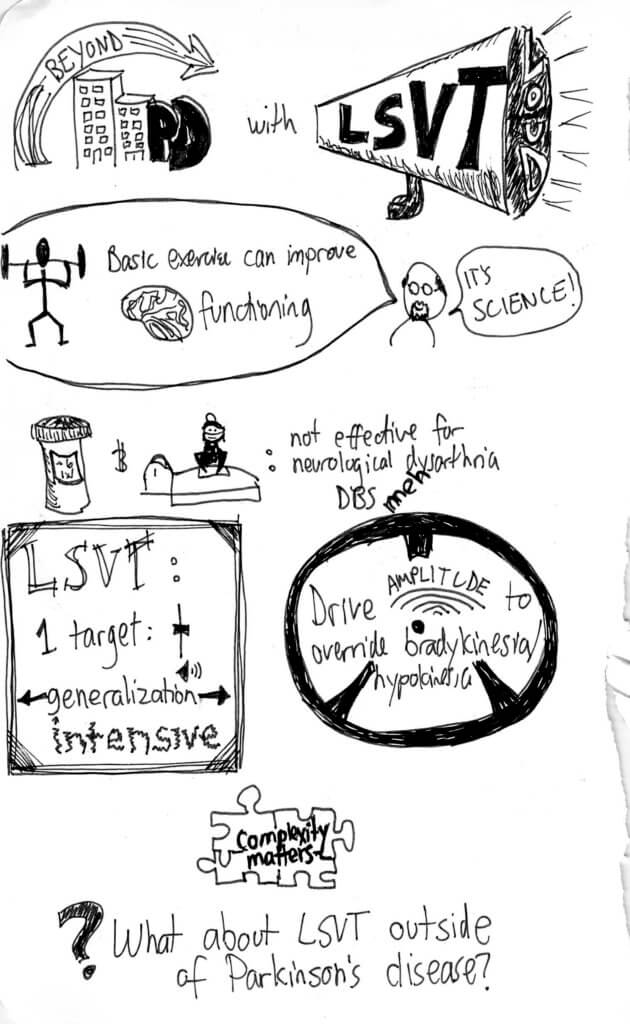 BEYOND
PD
with
LSVT
LOUD
Basic exercise can improve
functioning
IT'S
SCIENCE!
not effective for
neurological dysarthria
DBS meh
LSVT:
1 target:
generalization
intensive
Drive AMPLITUDE to
override bradykinesia/
hypokinesia
Complexity
matters
? What about LSVT outside
of Parkinson's disease?